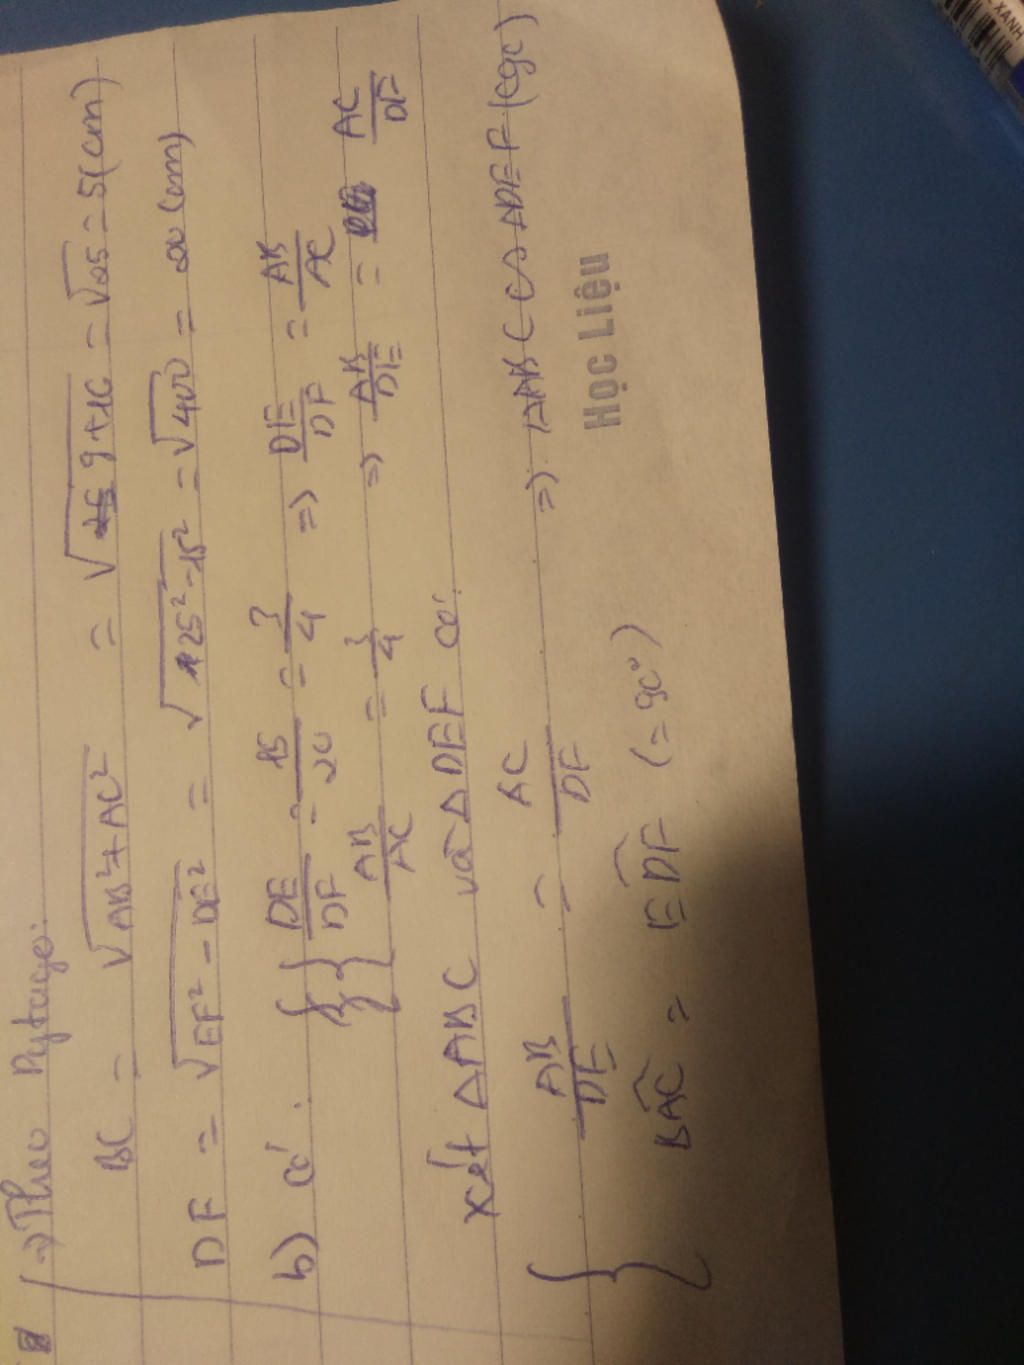 a) Theo Pytago:
BC = √AB²+AC² = √9+16 = √25 = 5(cm)
DF = √EF²-DE² = √25²-15² = √400 = 20(cm)
b) có: { DE/DF = 15/20 = 3/4 => DE/DF = AB/AC
AB/AC = 3/4 => AB/DE = AC/DF
Xét ΔABC và ΔDEF có:
{ AB/DE = AC/DF => ΔABC ∽ ΔDEF (cgc)
BAC = EDF (=90°)
Học Liệu
XANH